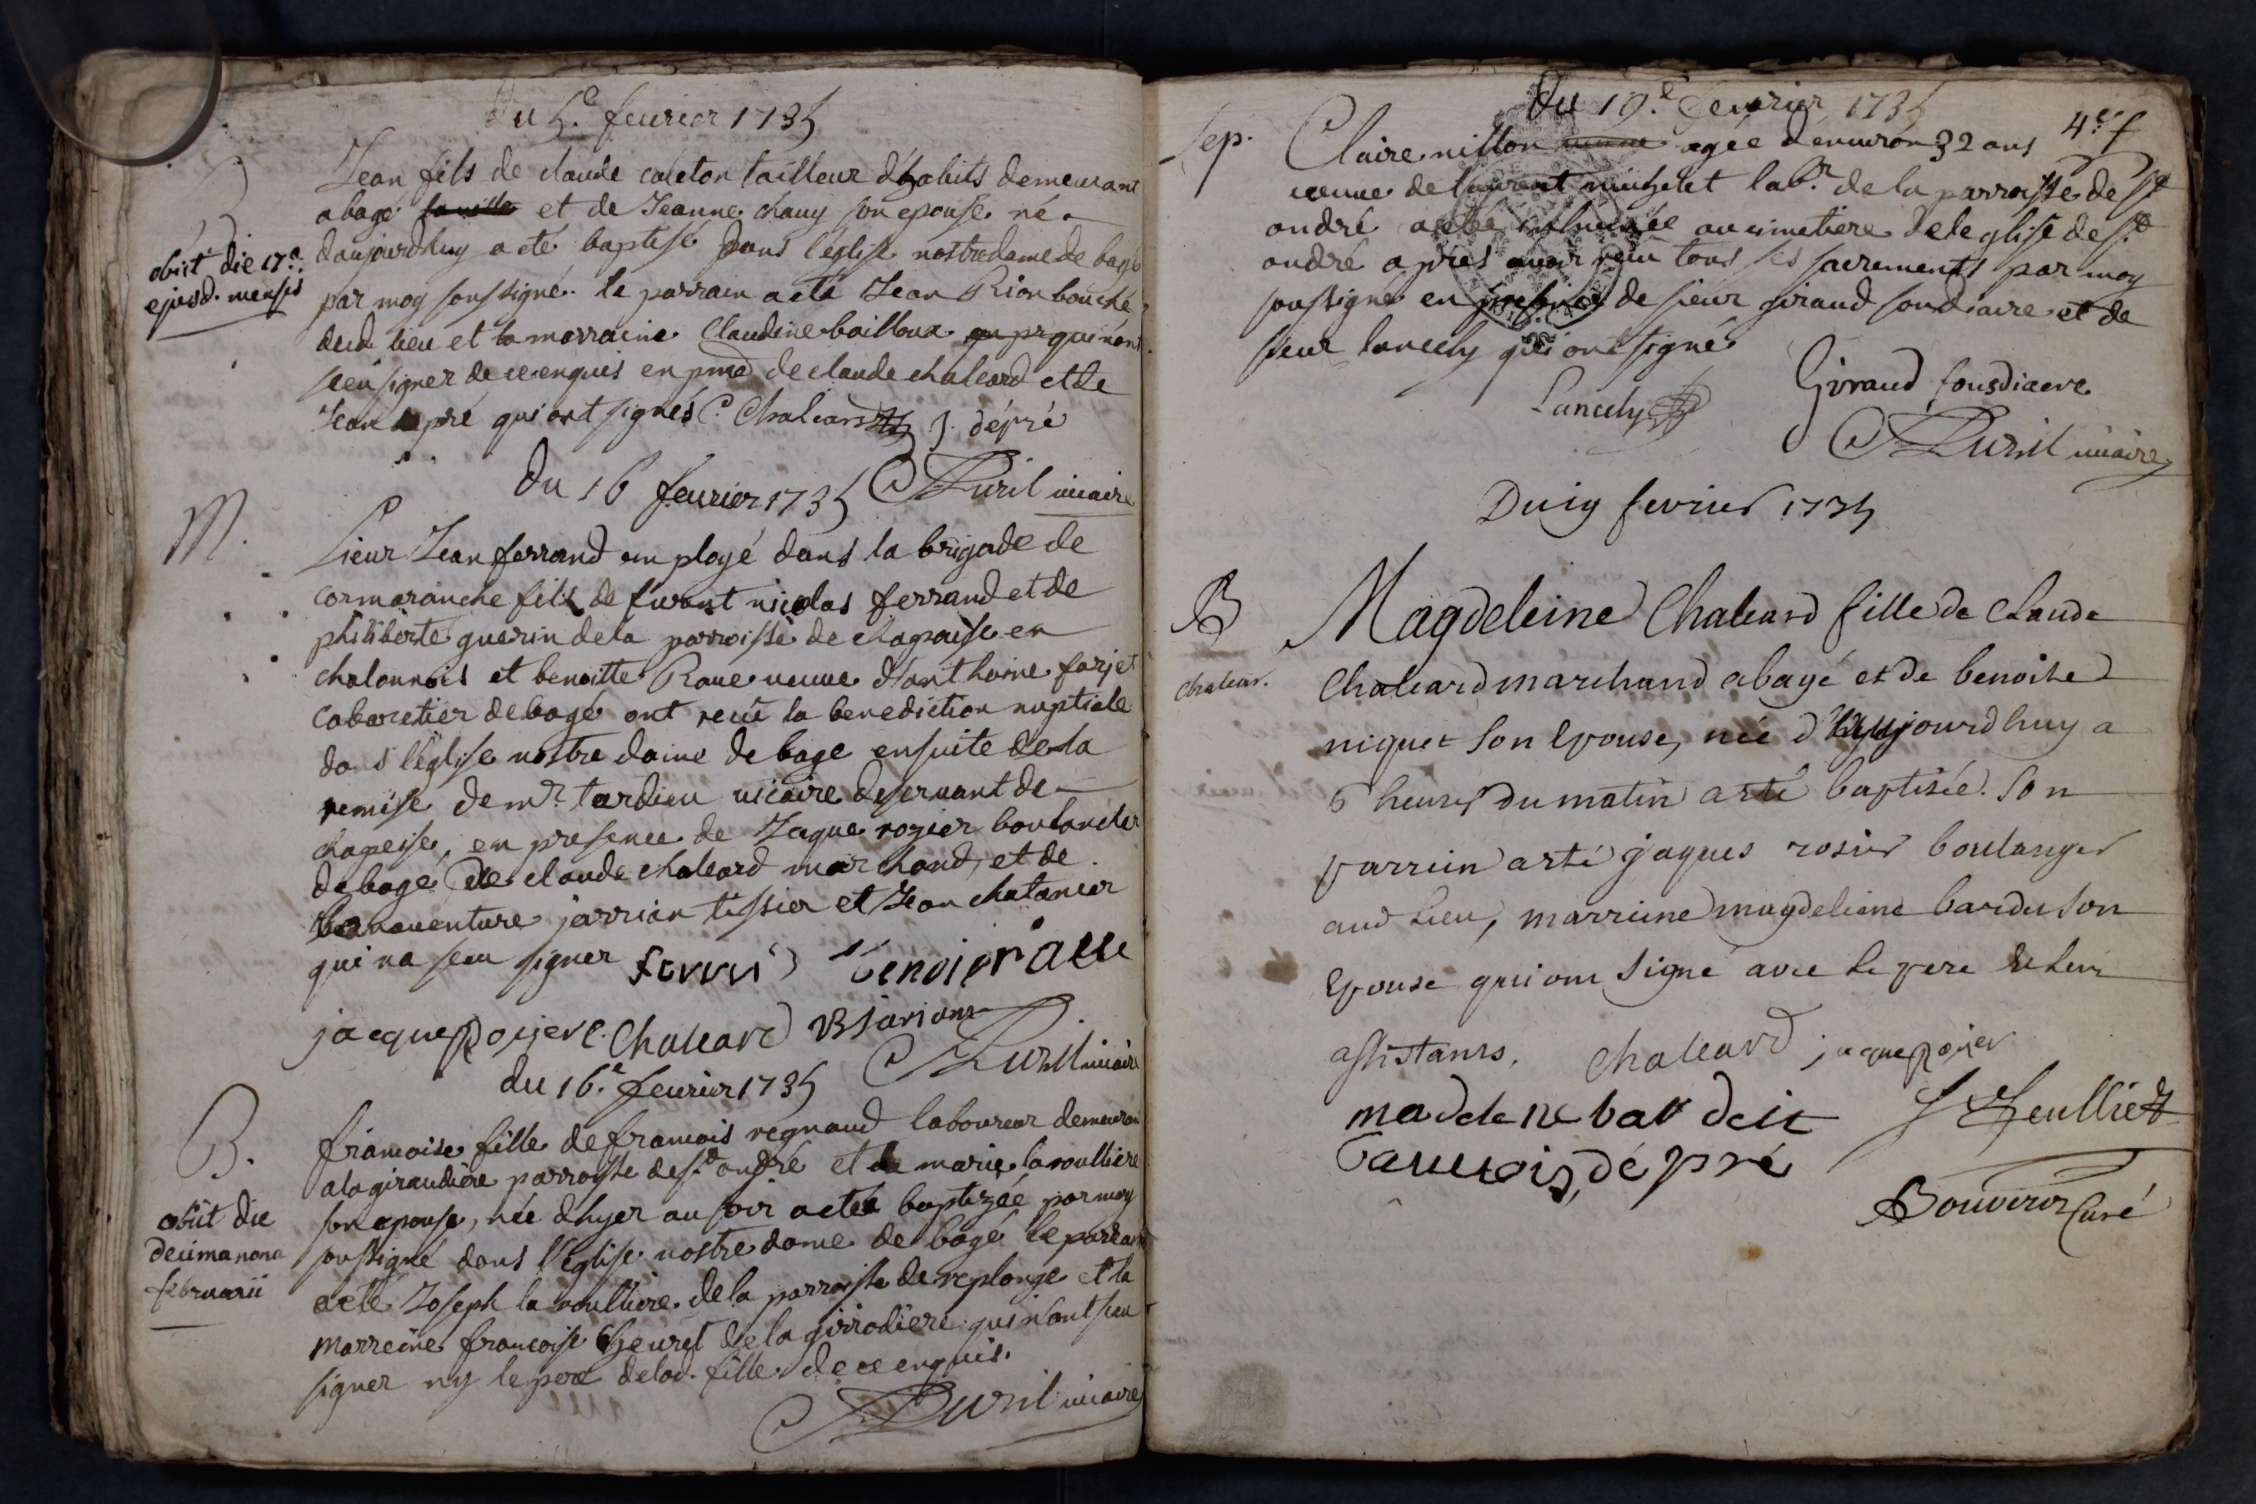 Du 5.e feurier 1735
Jean fils de claude caleton tailleur d'habits demeurant
abagé la ville et de Jeanne chauy son epouse né
obiit die 17.a
daujourdhuy a eté baptisé dans l'église nostre dame de bagé
ejusd. mensis
par moy soussigné. le parrain a eté Jean Rion bouché
dud. lieu et la marraine Claudine bailloux qui n'ont
sceu signer de ce enquis en pnce de claude chaleard et de
Jean depré qui ont signés C. Chaleard J. dépré
Duril uicaire
du 16 feurier 1735
M.
Sieur Jean ferrand employé dans la brigade de
cormaranche fils de furont nicolas ferrand et de
philiberte guerin de la parroisse de chapaise en
chalonnois et benoitte Raue ueuue d'anthoine farjet
cabaretier de bagé ont recû la benediction nuptiale
dans l'église nostre dame de bage ensuite de la
remise de mr. tardieu uicaire deseruant de
chapeise, en presence de Jaque rozier boulancher
de bagé de claude chaleard marchand, et de
bonauenture jarrian tissier et Jean chatanier
qui na sceu signer ferran benoit raue
jacque Rosier C. Chaleard B Jarian
Duril uicaire
du 16.e feurier 1735
B.
francoise fille de francois regnaud laboureur demeurant
ala giraudiere parroisse de st. andré et de marie la roulliere
son epouse, née d'hyer au soir a eté baptizée par moy
obiit die
soussigné dans l'église nostre dame de bagé le parrain
decima nona
a eté Joseph la roulliere de la parroisse de replonge et la
februarii
marreine francoise heuret de la girrodiere qui n'ont sceu
signer ny le pere de lad. fille de ce enquis.
Duril uicaire
du 19.e feurier 1735
4.e f
Sep.
Claire nillon agée denuiron 32 ans
ueuue de laurent michelet labr. de la parroisse de st.
andré a eté inhumée au cimetiere de leglise de st.
andré apres auoir recu tous ses sacrements par moy
soussigné en presence de sieur giraud sousdiacre et de
sieur lancely qui ont signé
Lancely Giraud sousdiacre
Duril uicaire
Du 19 fevrier 1735
B
Magdeleine Chaleard fille de Claude
chalear.
Chaleard marchand abagé et de benoite
niquet son epouse, née d'aujourdhuy a
6 heures du matin a eté baptisée. Son
parrein a eté jaques rosier boulanger
aud. Lieu, marreine magdeleine bardu son
epouse qui ont signé avec le pere et leur
assistants. Chaleard jacque Rosier
madelene bardeit
francois dépré
Bouvier Curé